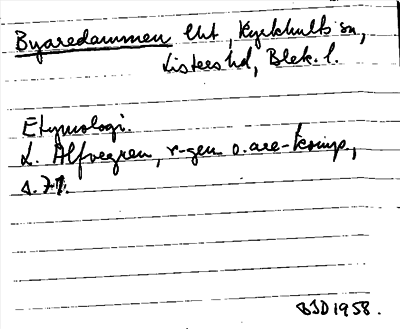 Byaredammen Ent, Kyrkhults sn,
Listers hd, Blek. l.
Etymologi.
L. Alfvegren, r-gen o. are-komp.,
s. 77.
BJD 1958.